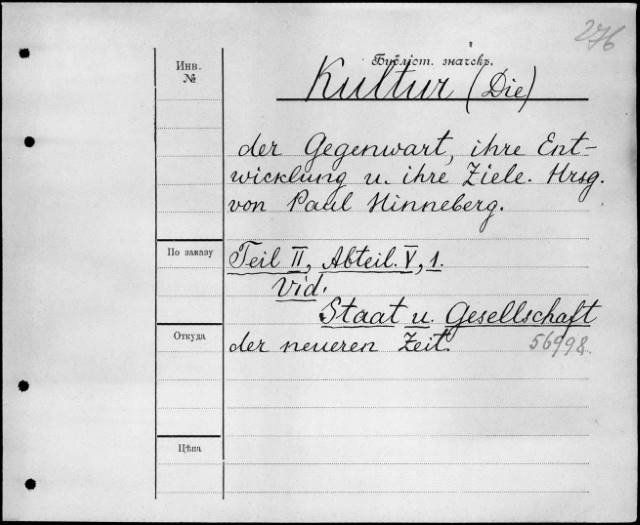 276
Библіот. значекъ.
Инв.
№
Kultur (Die)
der Gegenwart, ihre Ent-
wicklung u. ihre Ziele. Hrsg.
von Paul Hinneberg.
По заказу
Teil II, Abteil. V, 1.
Vid.
Staat u. Gesellschaft
Откуда
der neueren Zeit.
56998.
Цѣна